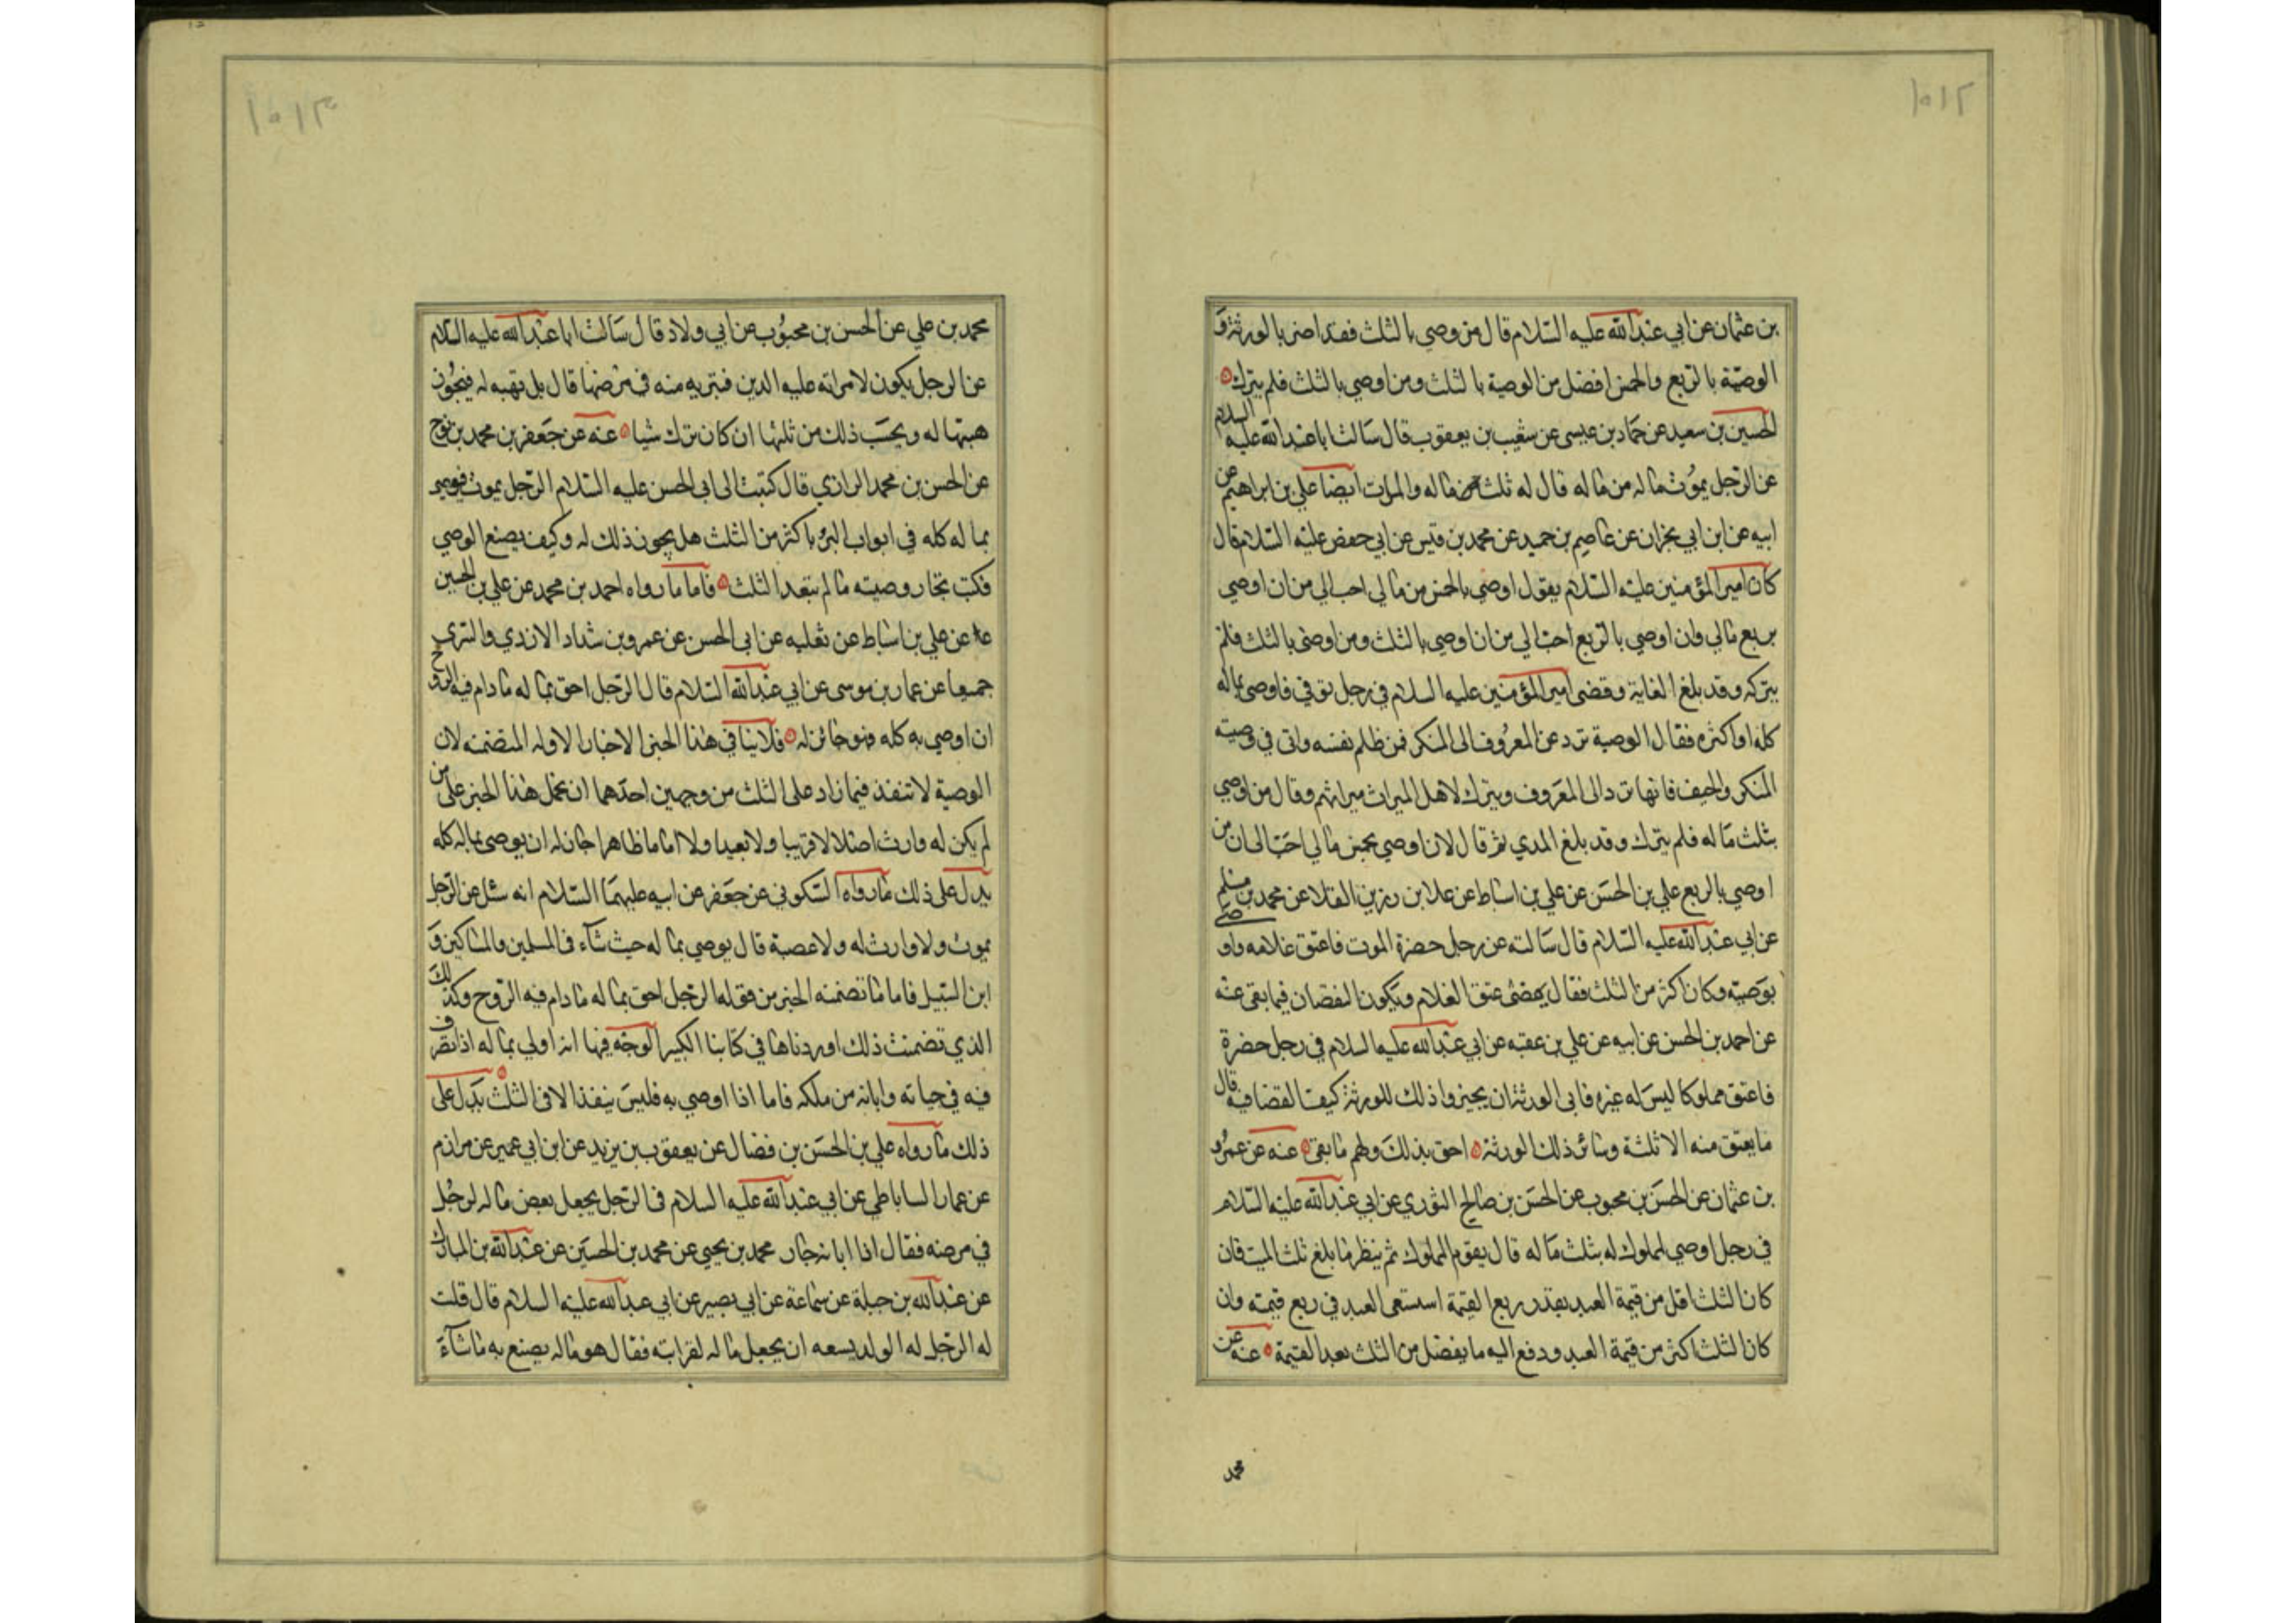 ١٠١٢
بن عثمان عن ابي عبدالله عليه السلام قال من وصي بالثلث فقد اضر بالورثة و
الوصية بالربع والخمس افضل من الوصية بالثلث ومن اوصي بالثلث فلم يترك
الحسين بن سعيد عن حماد بن عيسى عن شعيب بن يعقوب قال سالت ابا عبدالله عليه السلام
عن الرجل يموت ماله من ماله قال له ثلث ماله والمرات ايضا علي بن ابراهيم عن
ابيه عن ابن ابي نجران عن عاصم بن حميد عن محمد بن قيس عن ابي جعفر عليه السلام قال
كان امير المؤمنين عليه السلام يقول اوصي بالخمس من مالي احب الي من ان اوصي
بربع مالي وان اوصي بالربع احب الي من ان اوصي بالثلث ومن اوصى بالثلث فلم
يتركه وقد بلغ الغاية وقضى امير المؤمنين عليه السلام في رجل توفي فاوصى بماله
كله او اكثره فقال الوصية ترد عن المعروف الى المنكر فمن ظلم نفسه واتى في وصيته
المنكر والحيف فانها ترد الى المعروف ويترك لاهل الميراث ميراثهم وقال من اوصي
بثلث ماله فلم يترك وقد بلغ المدي ثم قال لان اوصي بخمس مالي احب الى من ان
اوصي بالربع علي بن الحسن عن علي بن اسباط عن علا بن رزين القلا عن محمد بن مسلم
عن ابي عبدالله عليه السلام قال سالته عن رجل حضرة الموت فاعتق غلامه واوصى
بوصية وكان اكثر من الثلث فقال يمضى عتق الغلام ويكون النقصان فيما بقى عنه
عن احمد بن الحسن عن ابيه عن علي بن عقبه عن ابي عبدالله عليه السلام في رجل حضرة
فاعتق مملوكا ليس له غيره فابى الورثة ان يجيزوا ذلك للورثة كيف القضا فيه قال
ما يعتق منه الا ثلثة وسائر ذلك الورثة احق بذلك ولهم ما بقى عنه عن عمرو
بن عثمان عن الحسن بن محبوب عن الحسن بن صالح الثوري عن ابي عبدالله عليه السلام
في رجل اوصي لمملوك له بثلث ماله قال يقوم المملوك ثم ينظر ما بلغ ثلث الميت فان
كان الثلث اقل من قيمة العبد بقدر ربع القيمة استسعى العبد في ربع قيمته وان
كان الثلث اكثر من قيمة العبد ودفع اليه ما يفضل من الثلث بعد القيمة عنه عن
محمد
١٠١٣
محمد بن علي عن الحسن بن محبوب عن ابي ولاد قال سالت ابا عبدالله عليه السلام
عن الرجل يكون لامراته عليه الدين فتبريه منه في مرضها قال بل تهبه له فيجوز
هبتها له ويحسب ذلك من ثلثها ان كان ترك شيا عنه عن جعفر بن محمد بن نوح
عن الحسن بن محمد الرازي قال كتبت الى ابي الحسن عليه السلام الرجل يموت فيوصي
بماله كله في ابواب البر باكثر من الثلث هل يجوز ذلك له وكيف يصنع الوصي
فكتب تجار وصيته ما لم يتعد الثلث فاما ما رواه احمد بن محمد عن علي بن الحسين
عن علي بن اسباط عن ثعلبه عن ابي الحسن عن عمرو بن شداد الازدي والسري
جميعا عن عمار بن موسى عن ابي عبدالله السلام قال الرجل احق بماله ما دام فيه الروح
ان اوصي به كله فهو جائز له فلا ينافي هذا الخبر الاخبار الاوله المتضمنه لان
الوصية لا تنفذ فيما زاد على الثلث من وجهين احدهما ان نحمل هذا الخبر على من
لم يكن له وارث اصلا لا قريبا ولا بعيدا ولا اماما ظاهرا جاز له ان يوصى بماله كله
يدل على ذلك ما رواه السكوني عن جعفر عن ابيه عليهما السلام انه سئل عن الرجل
يموت ولا وارث له ولا عصبة قال يوصي بماله حيث شاء في المسلمين والمساكين و
ابن السبيل فاما ما تضمنه الخبر من قوله الرجل احق بماله ما دام فيه الروح وكذلك
الذي تضمنت ذلك اوردناها في كتابنا الكبير الوجه فيها انه اولي بماله اذا تصرف
فيه في حياته وابانه من ملكه فاما اذا اوصي به فليس ينفذ الا في الثلث يدل على
ذلك ما رواه علي بن الحسن بن فضال عن يعقوب بن يزيد عن ابن ابي عمير عن مرازم
عن عمار الساباطي عن ابي عبدالله عليه السلام في الرجل يجعل بعض ماله لرجل
في مرضه فقال اذا ابانه جاز محمد بن يحيي عن محمد بن الحسين عن عبدالله بن المبارك
عن عبدالله بن جبلة عن سماعة عن ابي بصير عن ابي عبدالله عليه السلام قال قلت
له الرجل له الولد يسعه ان يجعل ماله لقرابته فقال هو ماله يصنع به ما شاء